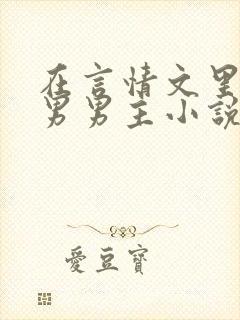 在言情文里
男男主小說
愛豆寶